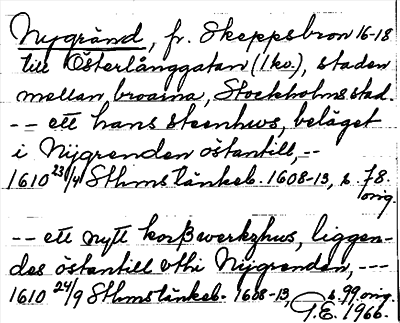 Nygränd, fr. Skeppsbron 16-18
till Österlånggatan (1 kv.), staden
mellan broarna, Stockholms stad.
-- ett hans steenhws, beläget
i Nijgrenden östantill, --
1610 23/4 Sthms tänkeb. 1608-13, s. 78.
orig.
-- ett nytt korßwerkzhus, liggen-
des östantill vthi Nijgrenden, ---
1610 24/9 Sthms tänkeb. 1608-13, s. 99 orig.
G.E. 1966.